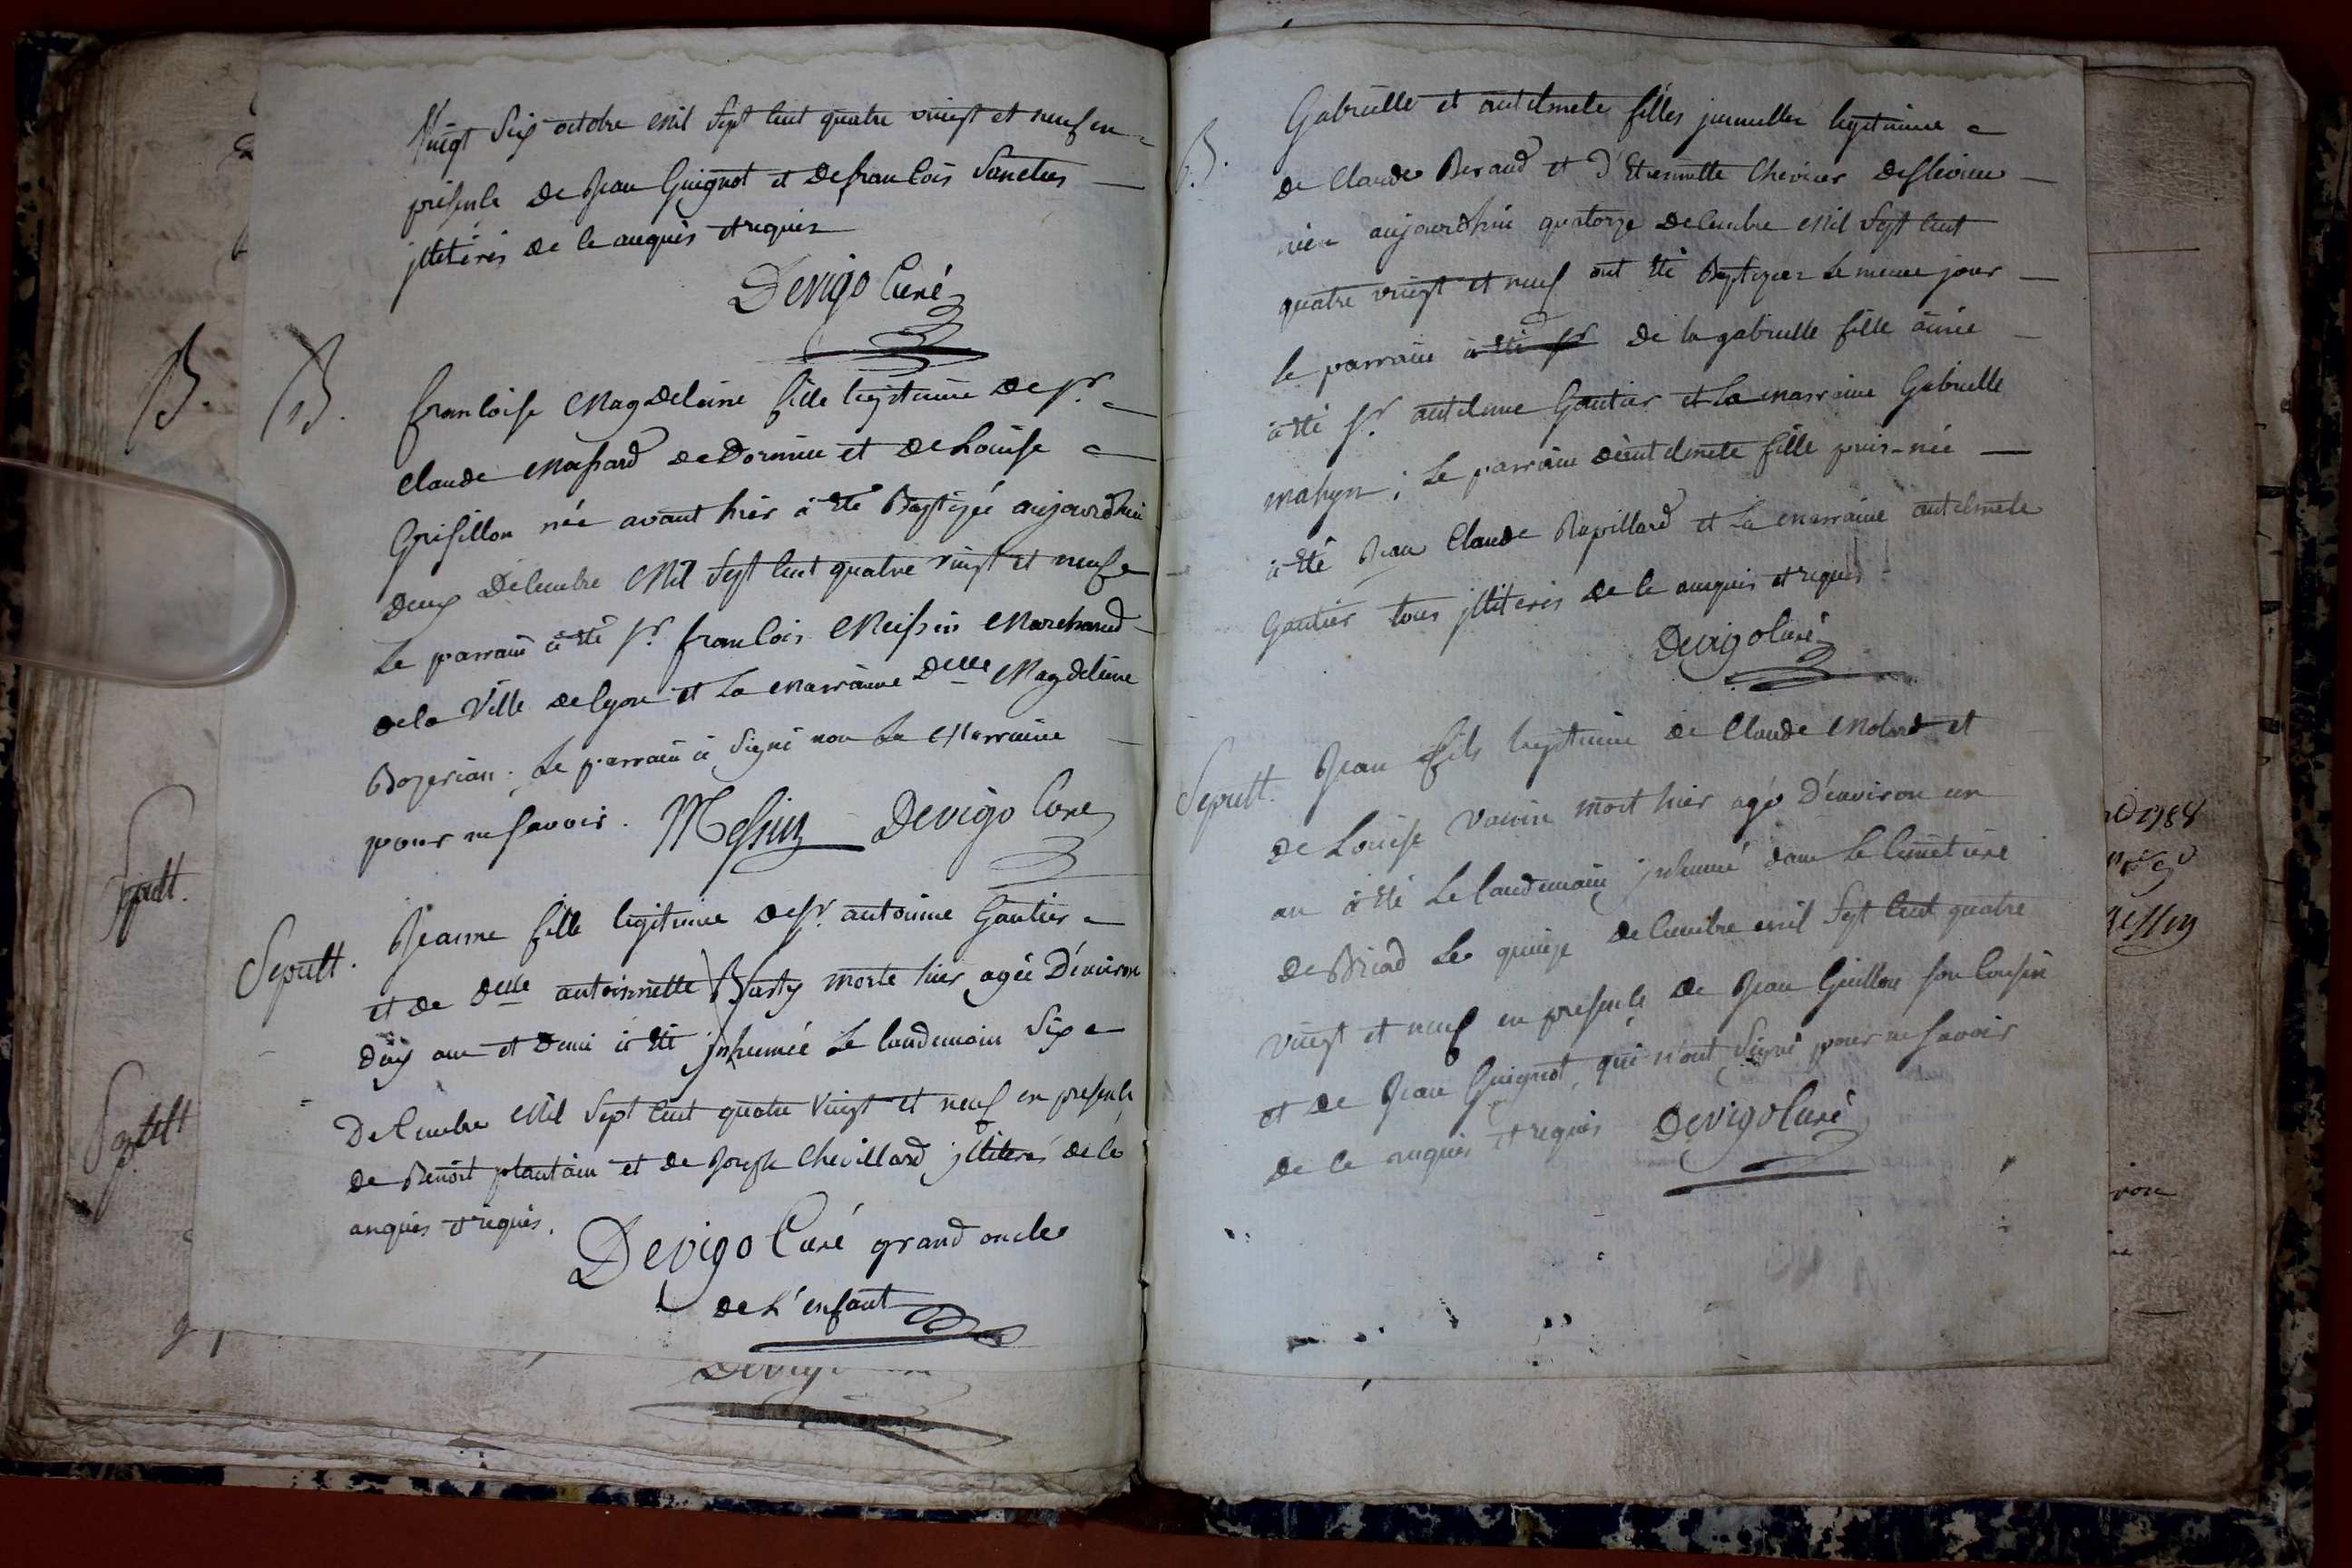 Vingt Six octobre mil Sept Cent quatre vingt et neuf en
présence de Jean Guignot et de francois Sanctus
jllitérés de ce enquis et requis
Devigo Curé
B.
B.
francoise Magdelaine fille legitime de Sr.
Claude Massard de Dornieu et de Louise
Grisillon née avant hier a été Baptizée aujourdhui
deux Décembre Mil Sept Cent quatre vingt et neuf
Le parrain a été Sr. francois Meissin Marchand
de la Ville de lyon et La Marraine Delle Magdelaine
Bozerian. Le parrain a Signé non La Marraine
pour ne Savoir. Messin Devigo Curé
Sepult.
Sepult. Jeanne fille legitime de Sr. antoinne Gautier
et de delle antoinnette morte hier agée D'environ
un an et demi a été jnhumée Le landemain Six
Décembre Mil Sept Cent quatre Vingt et neuf en présence
Sepult
de Benoit plantain et de Joseph Chevillard jllitérés de ce
enquis et requis.
Devigo Curé grand oncle
de L'enfant
B.
Gabrielle et antelmete filles jumelles legitimes
de Claude Beraud et d'Etiennette Chevrier
aujourdhui quatorze décembre Mil Sept Cent
quatre vingt et neuf ont été Baptizées Le meme jour
le parrain a été Sr de la gabrielle fille ainée
a été Sr. antelme Gautier et La marraine Gabrielle
; Le parrain d'antelmete fille puis-née
a été Jean Claude Rapillard et La Marraine antelmete
Gautier tous jllitérés de ce enquis et requis
Devigo Curé
Sepult. Jean fils legitime de Claude Molard et
de Louise mort hier agé D'environ un
an a été Le landemain jnhumé dans Le Cimetiere
de Briord Le quinze décembre mil Sept Cent quatre
vingt et neuf en présence de Jean Guillon son Cousin
et de Jean Guignot, qui n'ont Signé pour ne Savoir
de ce enquis et requis Devigo Curé
1788